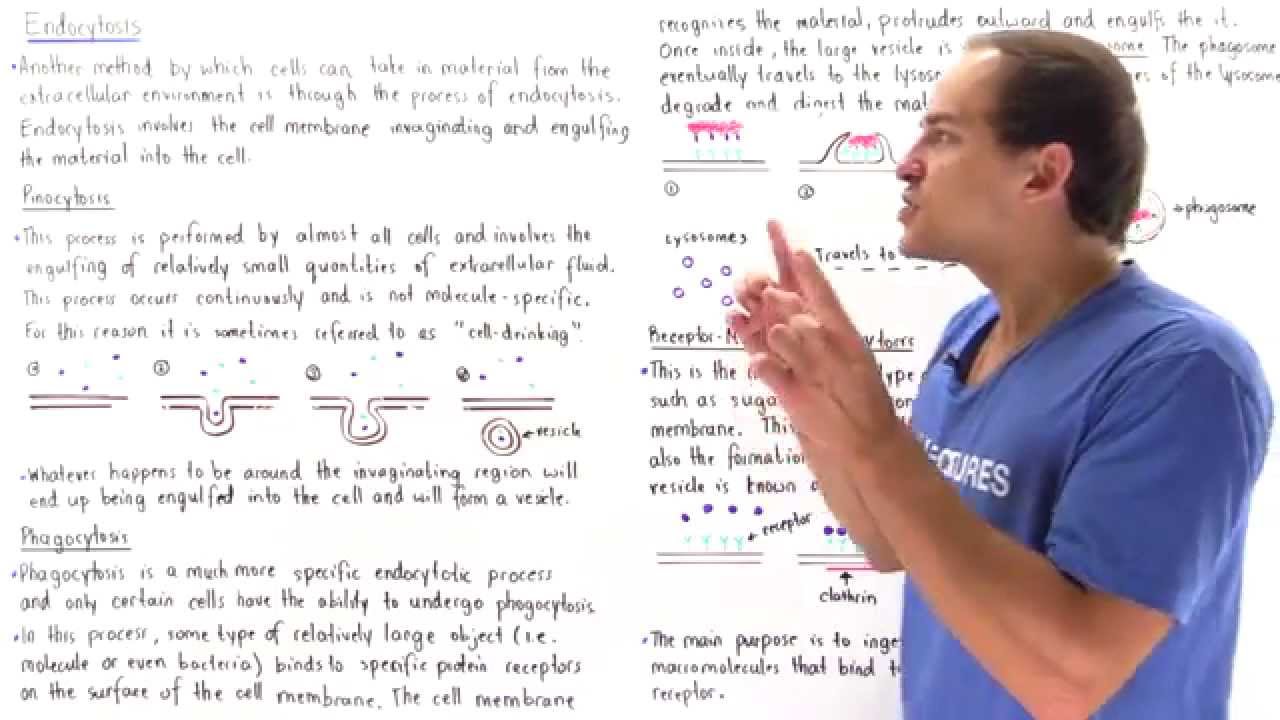 Endocytosis
• Another method by which cells can take in material from the
extracellular environment is through the process of endocytosis.
Endocytosis involves the cell membrane invaginating and engulfing
the material into the cell.
Pinocytosis
• This process is performed by almost all cells and involves the
engulfing of relatively small quantities of extracellular fluid.
This process occurs continuously and is not molecule-specific.
For this reason it is sometimes referred to as "cell-drinking".
vesicle
• Whatever happens to be around the invaginating region will
end up being engulfed into the cell and will form a vesicle.
Phagocytosis
• Phagocytosis is a much more specific endocytotic process
and only certain cells have the ability to undergo phagocytosis
• In this process, some type of relatively large object (i.e.
molecule or even bacteria) binds to specific protein receptors
on the surface of the cell membrane. The cell membrane
recognizes the material, protrudes outward and engulfs the it.
Once inside, the large vesicle is The phagosome
eventually travels to the of the lysosome
degrade and digest the
① ②
phagosome
Lysosomes
Travels to
Receptor-
• This is the type
such as
membrane.
also the formation
vesicle is known
LECTURES
receptor
clathrin
• The main purpose is to
macromolecules that bind
receptor.